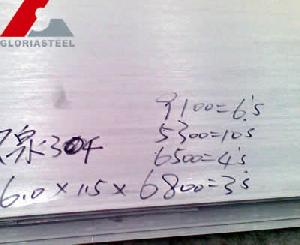 GLORIASTEEL
9100=6's
5300=10s
6500=4's
泉304
6.0×1.5×6800=3's